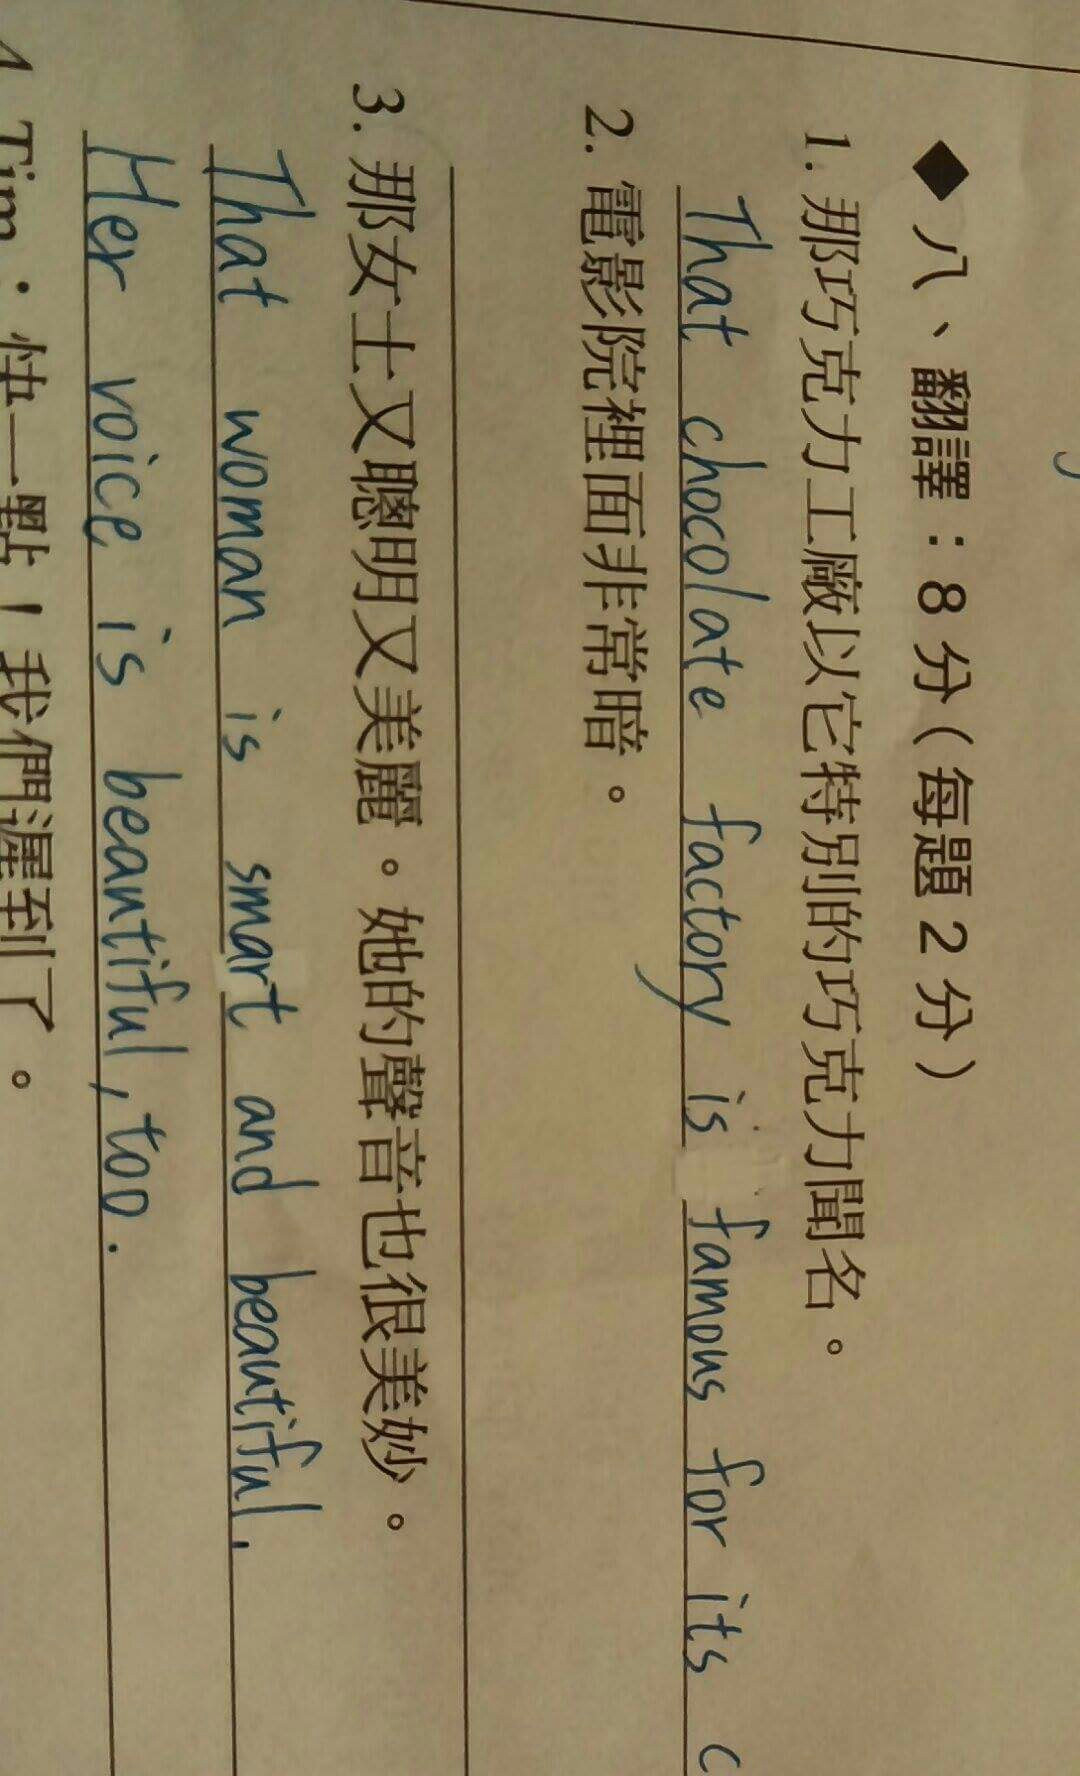 ◆八、翻譯：8分(每題2分)
1. 那巧克力工廠以它特別的巧克力聞名。
That chocolate factory is famous for its c
2. 電影院裡面非常暗。
3. 那女士又聰明又美麗。她的聲音也很美妙。
That woman is smart and beautiful.
Her voice is beautiful, too.
4. Tim：快一點！我們遲到了。